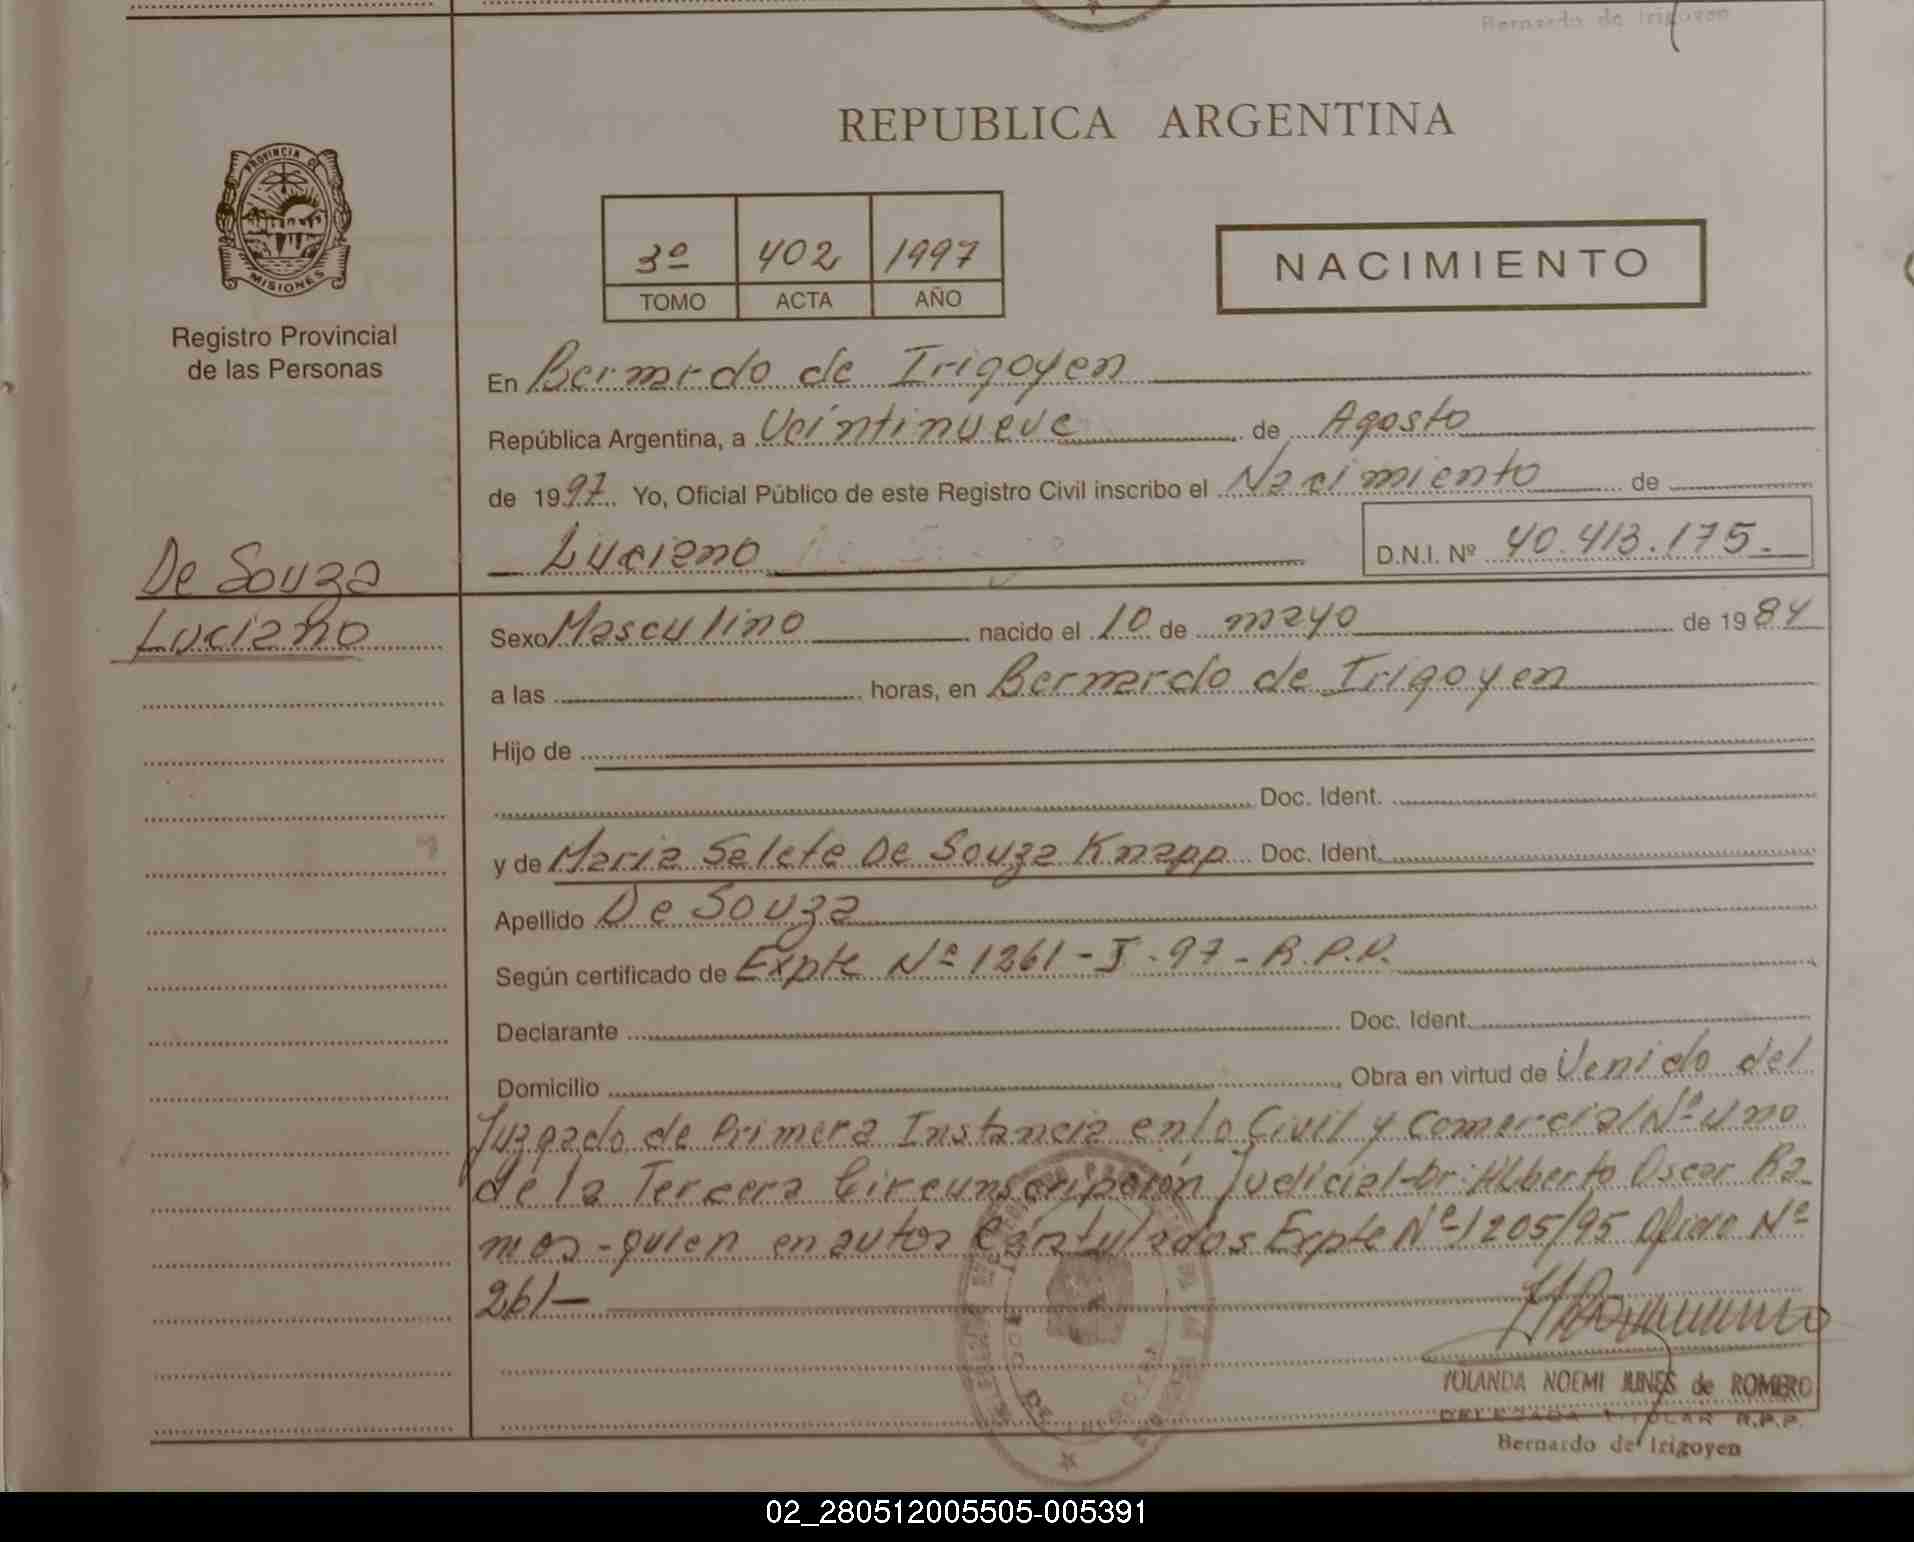 Bernardo de Irigoyen
REPUBLICA ARGENTINA
PROVINCIA DE
MISIONES
Registro Provincial
de las Personas
3º 402 1997
TOMO ACTA AÑO
NACIMIENTO
En Bernardo de Irigoyen
República Argentina, a Veintinueve de Agosto
de 1997 Yo, Oficial Público de este Registro Civil inscribo el Nacimiento de
Luciano D.N.I. Nº 40.413.175.
De Souza
Luciano
Sexo Masculino nacido el 10 de mayo de 1984
a las horas, en Bernardo de Irigoyen
Hijo de
Doc. Ident.
y de Maria Salete De Souza Knapp Doc. Ident.
Apellido De Souza
Según certificado de Expte Nº 1261-I-97-R.P.P.
Declarante Doc. Ident.
Domicilio Obra en virtud de Venido del
Juzgado de Primera Instancia en lo Civil y Comercial Nº Uno
de la Tercera Circunscripción Judicial-Dr: Alberto Oscar Ra-
mos-quien en autos Caratulados Expte Nº 1205/95 Oficio Nº
261-
YOLANDA NOEMI de ROMERO
DELEGADA TITULAR R.P.P.
Bernardo de Irigoyen
02_280512005505-005391